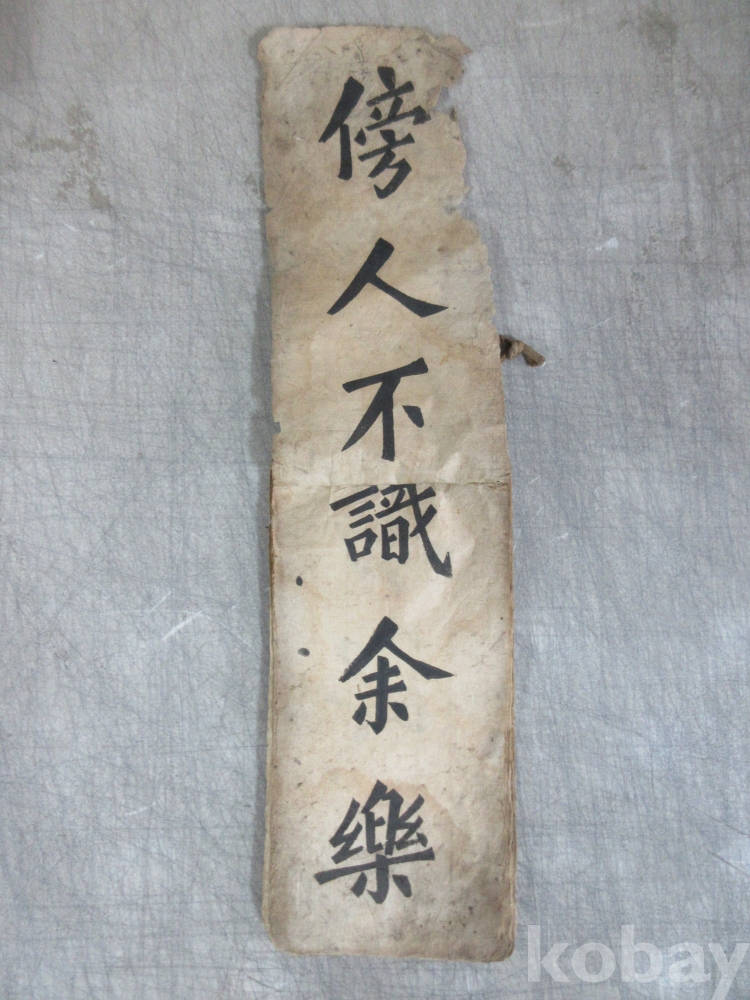 傍人不識余樂
kobay